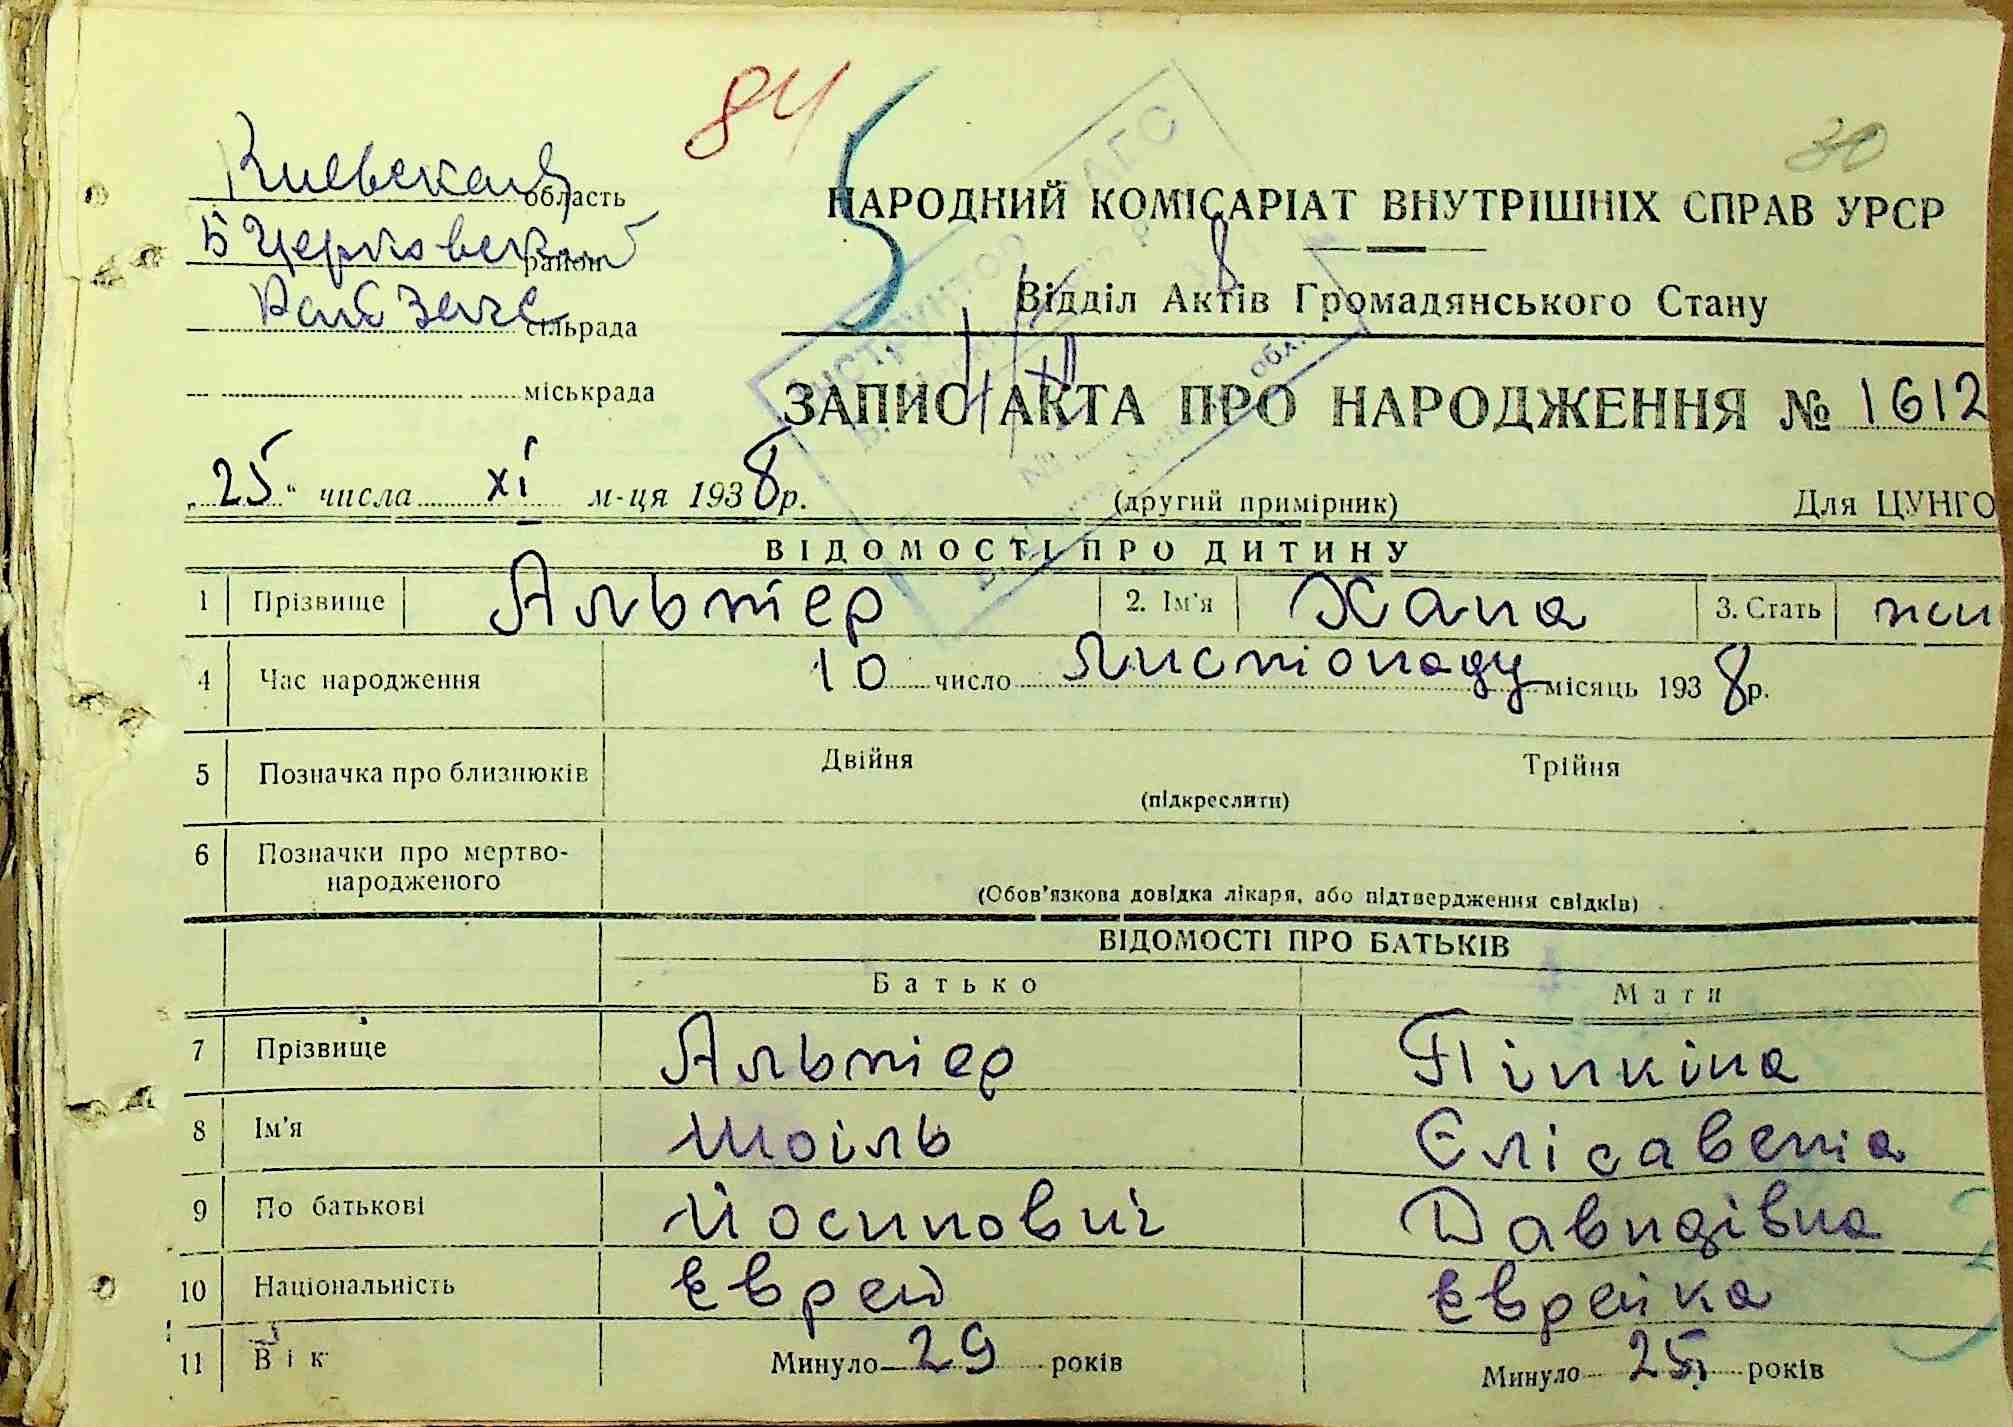 84
30
Киевская область
БЦерковский район
РайЗагс сільрада
міськрада
НАРОДНИЙ КОМІСАРІАТ ВНУТРІШНІХ СПРАВ УРСР
Відділ Актів Громадянського Стану
ЗАПИС АКТА ПРО НАРОДЖЕННЯ № 1612
„25“ числа XI м-ця 1938 р.
(другий примірник)
Для ЦУНГО
ВІДОМОСТІ ПРО ДИТИНУ
1 Прізвище Альтер 2. Ім'я Хана 3. Стать жи
4 Час народження 10 число Листопаду місяць 1938 р.
5 Позначка про близнюків Двійня Трійня
(підкреслити)
6 Позначки про мертво-
народженого
(Обов'язкова довідка лікаря, або підтвердження свідків)
ВІДОМОСТІ ПРО БАТЬКІВ
Батько Мати
7 Прізвище Альтер Пінкіна
8 Ім'я Шоіль Єлісавета
9 По батькові Йосипович Давидівна
10 Національність Єврей Єврейка
11 Вік Минуло 29 років Минуло 25 років